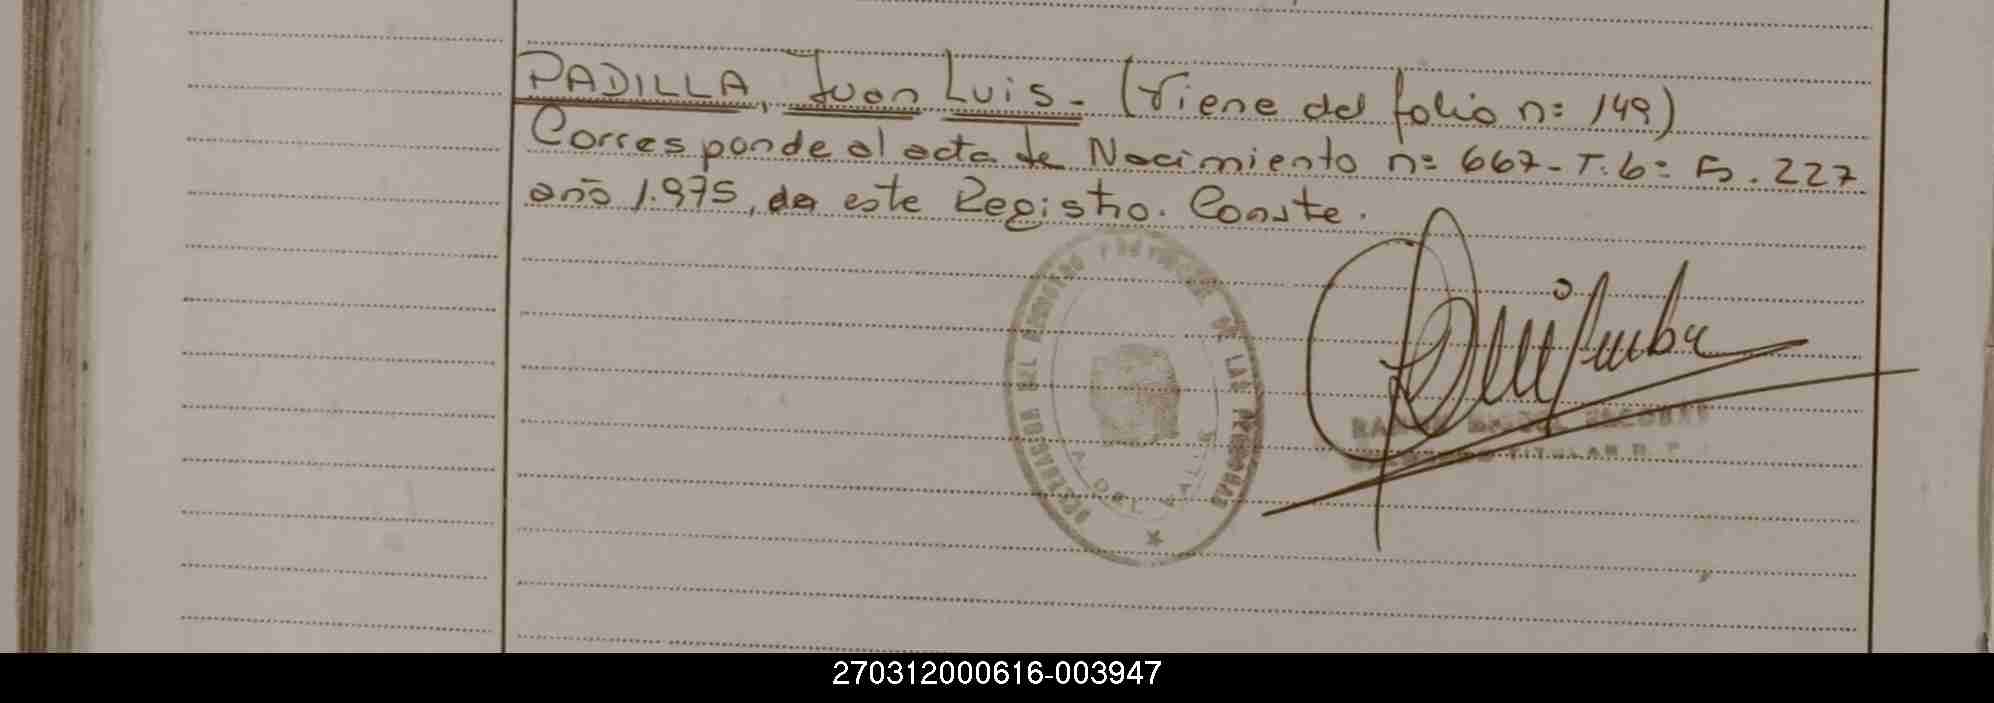 PADILLA, Juan Luis.- (Viene del folio nº 149)
Corresponde al acta de Nacimiento nº 667- T. 6º Fº. 227
año 1.975, de este Registro. Conste.
DEL REGISTRO DE LAS PERSONAS
DEL VALLE
TITULAR
270312000616-003947